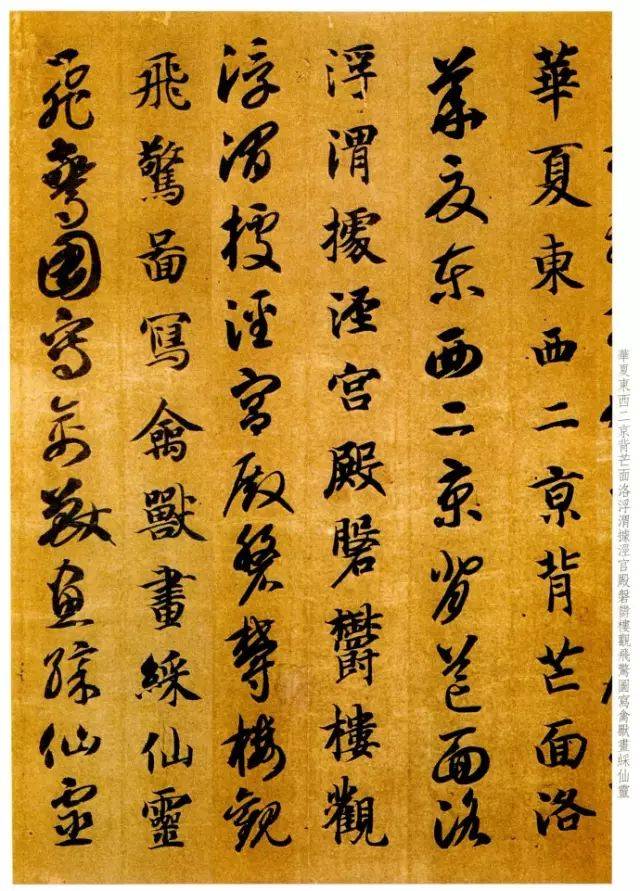 華夏東西二京背芒面洛浮渭據涇宮殿磐欝樓觀飛驚圖寫禽獸畫綵仙靈
華夏東西二亰背芒面洛
華夏東西二京背芒面洛
浮渭據涇宮殿磐欝樓觀
浮渭據涇宮殿磐欝樓觀
飛驚啚寫禽獸畫綵仙靈
飛驚圖寫禽獸畫綵仙靈